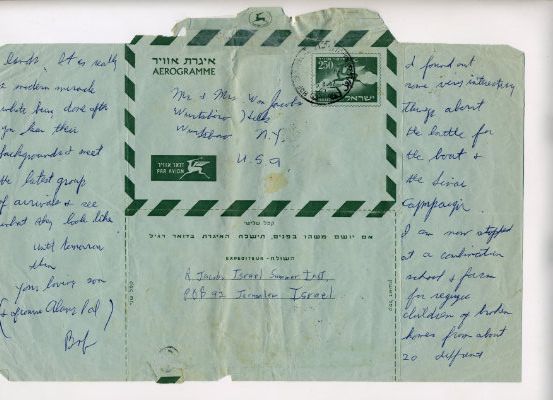 lands. It is really
a modern miracle
what's being done after
you hear their
backgrounds & meet
the latest group
of arrivals & see
what they look like.
until tomorrow
then
Your loving son
Bob
איגרת אוויר
AEROGRAMME
דואר אוויר
250
ישראל
Mr. & Mrs. Wm Jacobs
Wurtsboro Hills
Wurtsboro N.Y.
U.S.A.
דואר אוויר
PAR AVION
קפל שלישי
אם יושם משהו בפנים, תישלח האיגרת בדואר רגיל
השולח - EXPEDITEUR
R Jacobs Israel Summer Inst.
POB 92 Jerusalem Israel
I found out
some very interesting
things about
the battle for
the boat &
the Sinai
Campaign.
I am now stopped
at a combination
school & farm
for refugee
children of broken
homes from about
20 different